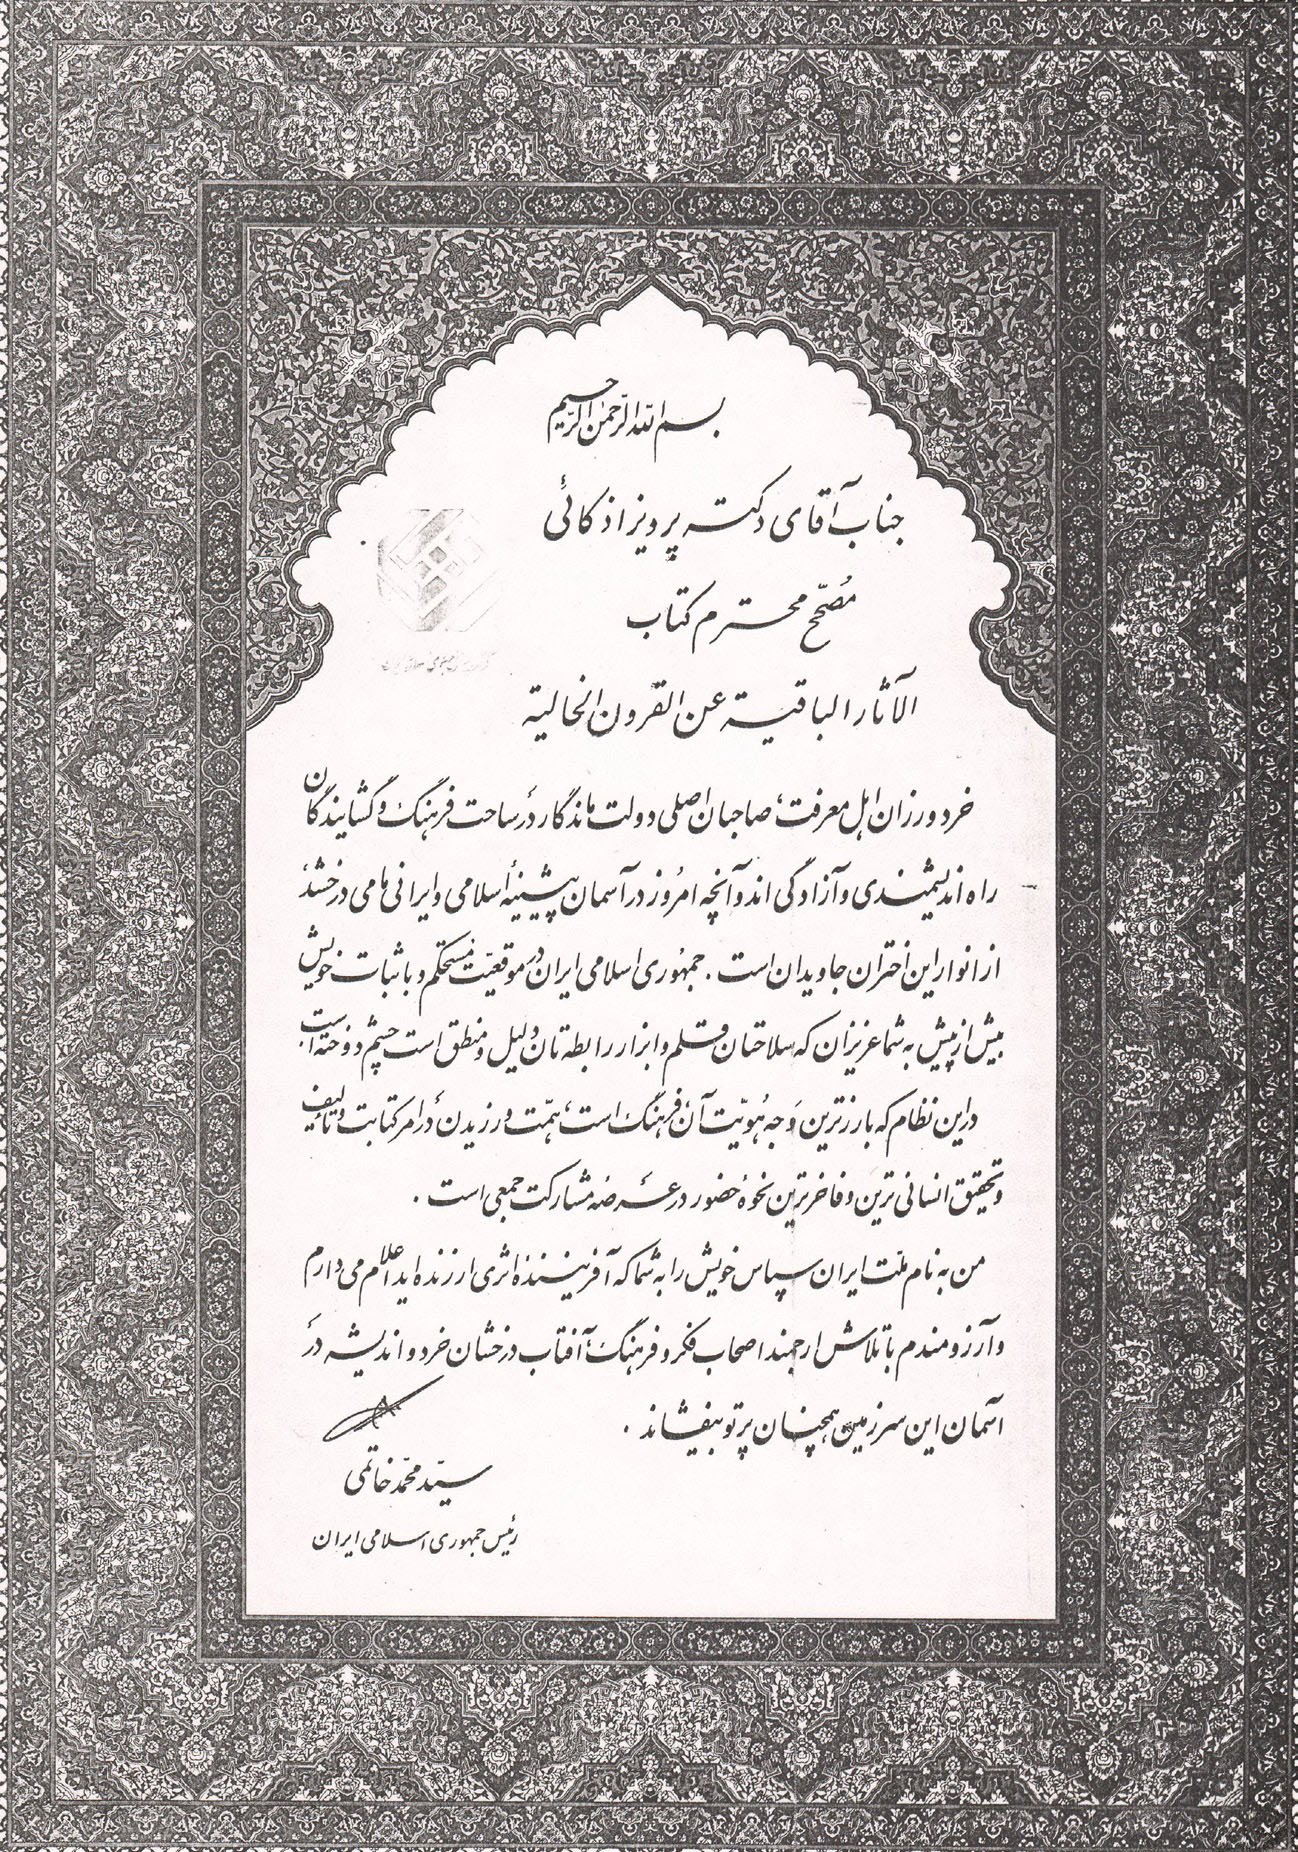 بسم الله الرحمن الرحیم
جناب آقای دکتر پرویز اذکائی
مُصحّح محترم کتاب
الآثار الباقیة عن القرون الخالیة
خردورزان اهل معرفت، صاحبان اصلی دولت ماندگار در ساحت فرهنگ و گشایندگان
راه اندیشمندی و آزادگی اند و آنچه امروز در آسمان پیشینهٔ اسلامی و ایرانی ما می درخشد
از انوار این اختران جاویدان است. جمهوری اسلامی ایران در موقعیّت مستحکم و با ثبات خویش
بیش از پیش به شما عزیزان که سلاحتان قلم و ابزار رابطه تان دلیل و منطق است چشم دوخته است
در این نظام که بارزترین وَجه هُویّت آن، فرهنگ است، همّت ورزیدن در امر کتابت و تألیف
و تحقیق انسانی ترین و فاخرترین نحوهٔ حضور در عرصه مشارکت جمعی است.
من به نام ملّت ایران سپاس خویش را به شما که آفرینندهٔ اثری ارزنده اید اعلام می دارم
و آرزومندم با تلاش ارجمند اصحاب فکر و فرهنگ، آفتاب درخشان خرد و اندیشه در
آسمان این سرزمین همچنان پرتو بیفشاند.
سیّد محمّد خاتمی
رئیس جمهوری اسلامی ایران